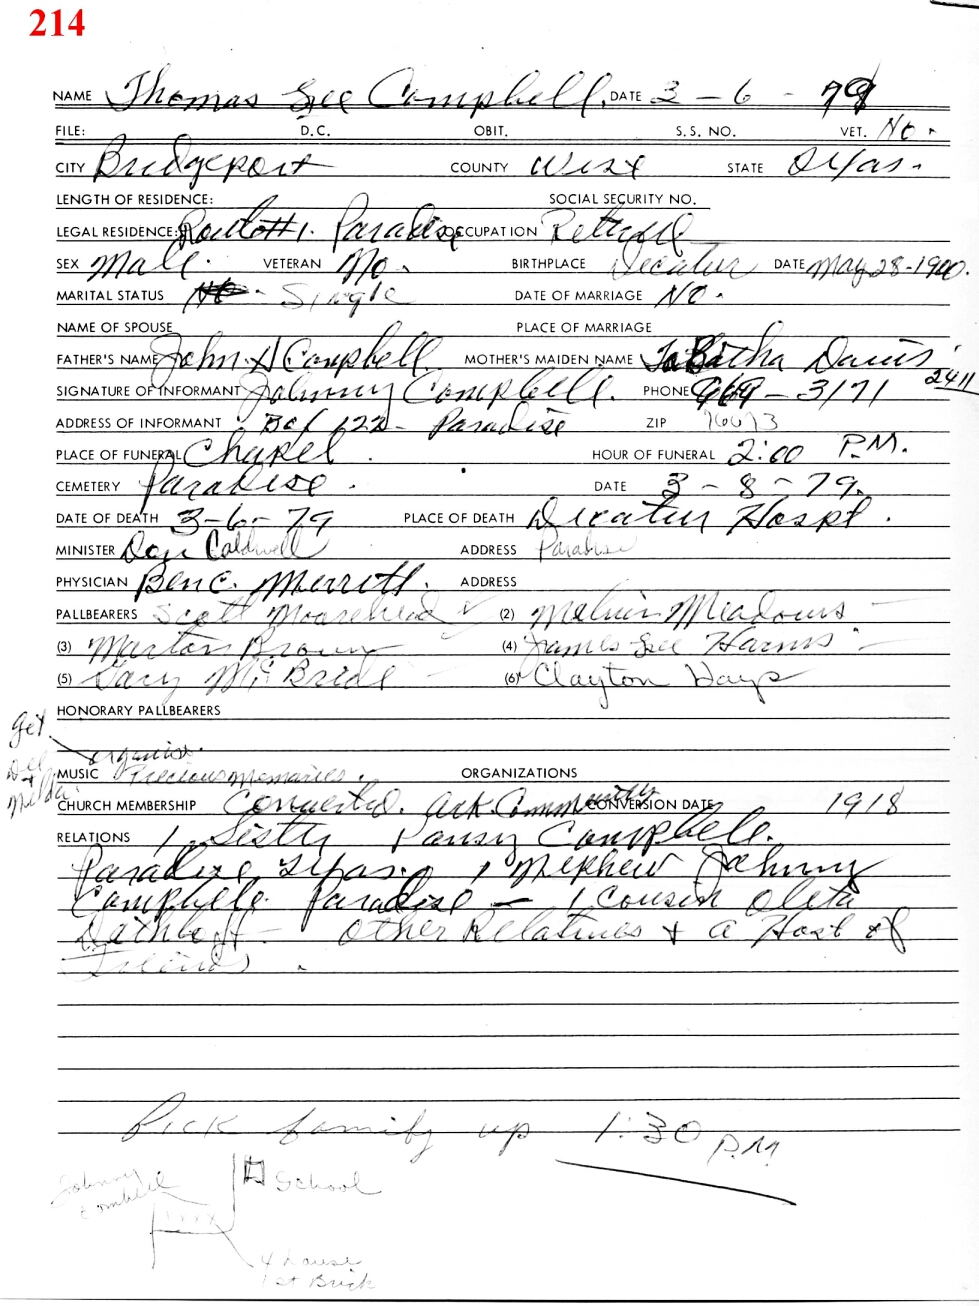 214
NAME Thomas Lee Campbell. DATE 3-6-79
FILE: D.C. OBIT. S.S. NO. VET. No.
CITY Bridgeport COUNTY Wise STATE Texas.
LENGTH OF RESIDENCE: SOCIAL SECURITY NO.
LEGAL RESIDENCE: Route #1. Paradise OCCUPATION Retired
SEX Male. VETERAN No. BIRTHPLACE Decatur DATE May 28-1900.
MARITAL STATUS Single DATE OF MARRIAGE No.
NAME OF SPOUSE PLACE OF MARRIAGE
FATHER'S NAME John H Campbell. MOTHER'S MAIDEN NAME Tabitha Davis
SIGNATURE OF INFORMANT Johnny Campbell. PHONE 969-3171 2411
ADDRESS OF INFORMANT Box 122- Paradise ZIP 76073
PLACE OF FUNERAL Chapel. HOUR OF FUNERAL 2:00 P.M.
CEMETERY Paradise. DATE 3-8-79.
DATE OF DEATH 3-6-79 PLACE OF DEATH Decatur Hospt.
MINISTER Don Caldwell ADDRESS Paradise
PHYSICIAN Ben C. Merritt. ADDRESS
PALLBEARERS Scott Moorehead ✓ (2) Melvin Meadows -
(3) Marton Brown - (4) James Lee Harris -
(5) Gary McBride - (6) Clayton Hays
HONORARY PALLBEARERS
Get
organist.
MUSIC Precious Memories. ORGANIZATIONS
Dee + Melda
CHURCH MEMBERSHIP Converted. Ark. Community CONVERSION DATE 1918
RELATIONS 1 Sister Pansy Campbell.
Paradise, Texas. 1 Nephew Johnny
Campbell. Paradise - 1 Cousin Oleta
- Other Relatives + a Host of
Friends.
Pick family up 1:30 P.M.
School
Johnny
Campbell
4 house
1st Brick